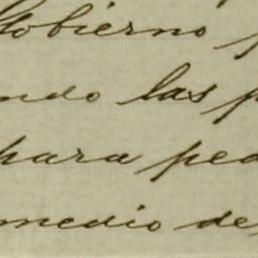 Gobierno p
ndo las p
para ped
medio de